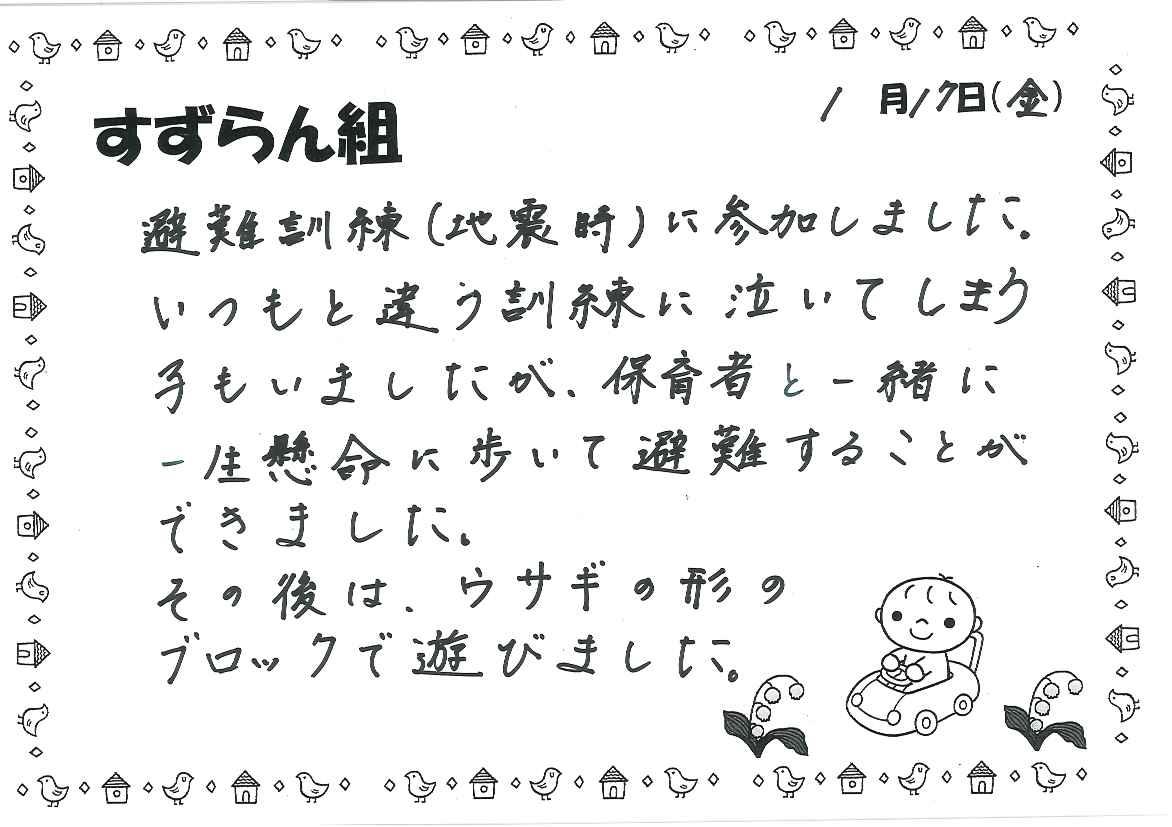 すずらん組
1月17日(金)
避難訓練(地震時)に参加しました。
いつもと違う訓練に泣いてしまう
子もいましたが、保育者と一緒に
一生懸命に歩いて避難することが
できました。
その後は、ウサギの形の
ブロックで遊びました。